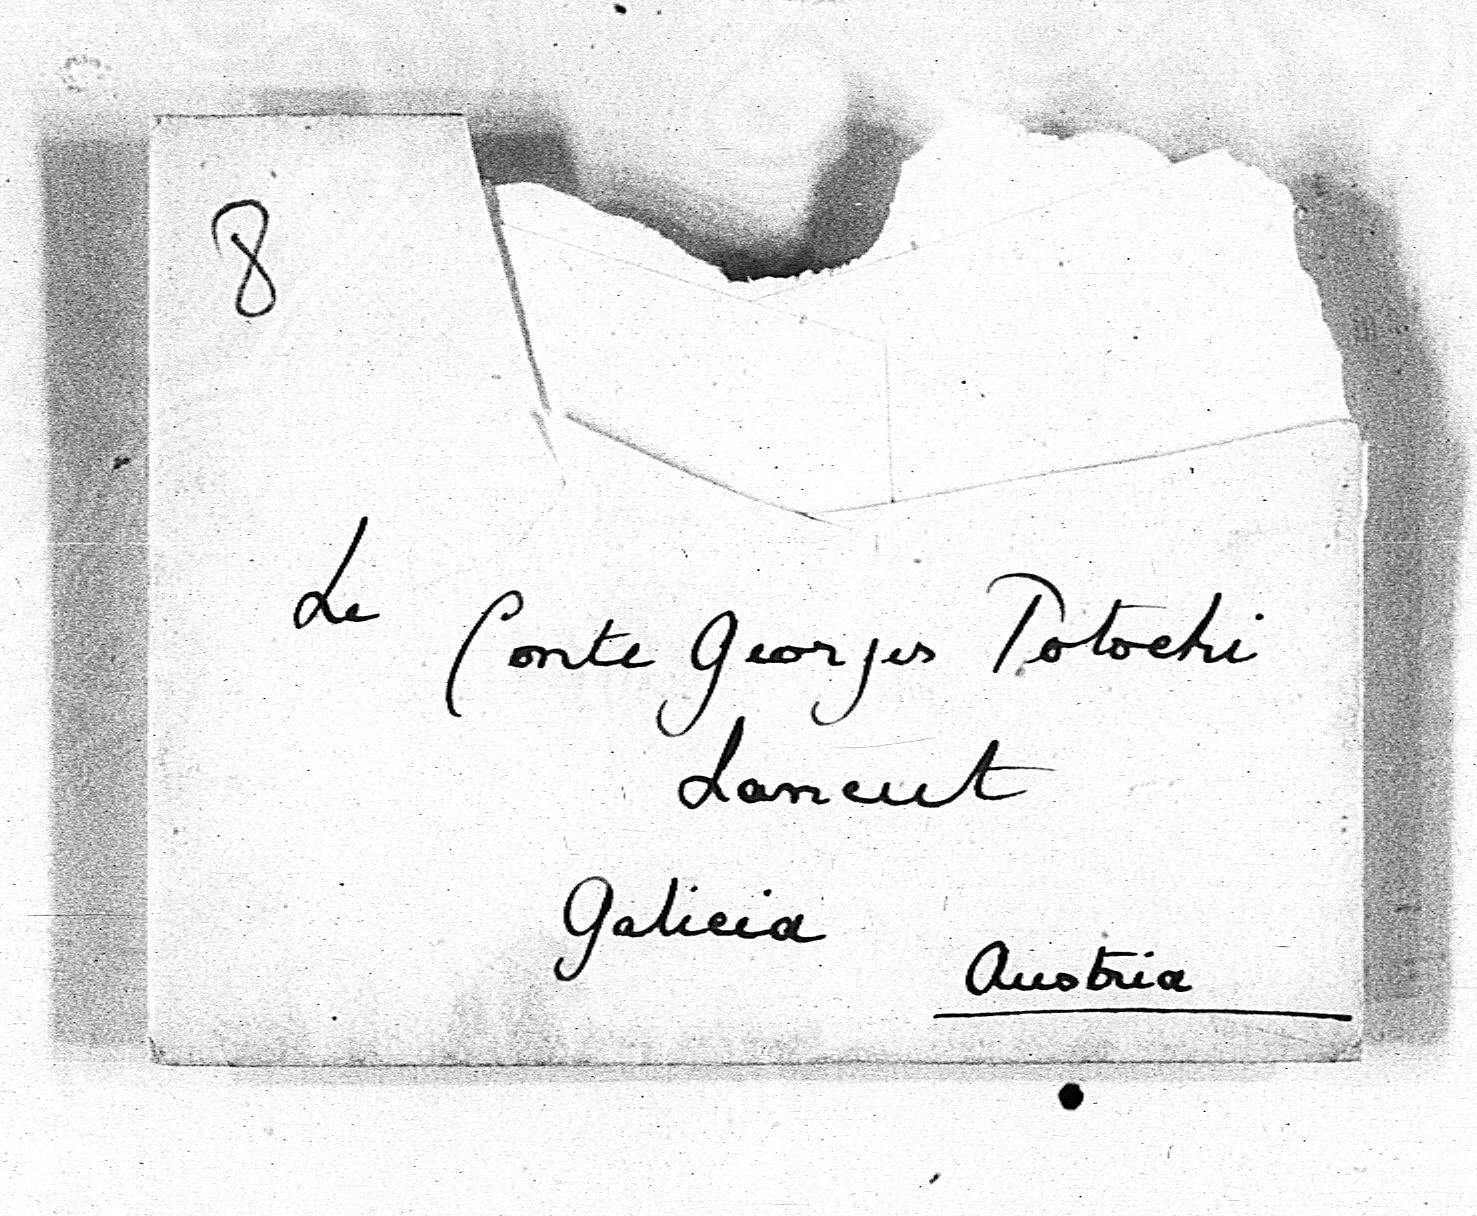 8
Le Conte Georges Potocki
Lancut
Galicia
Austria